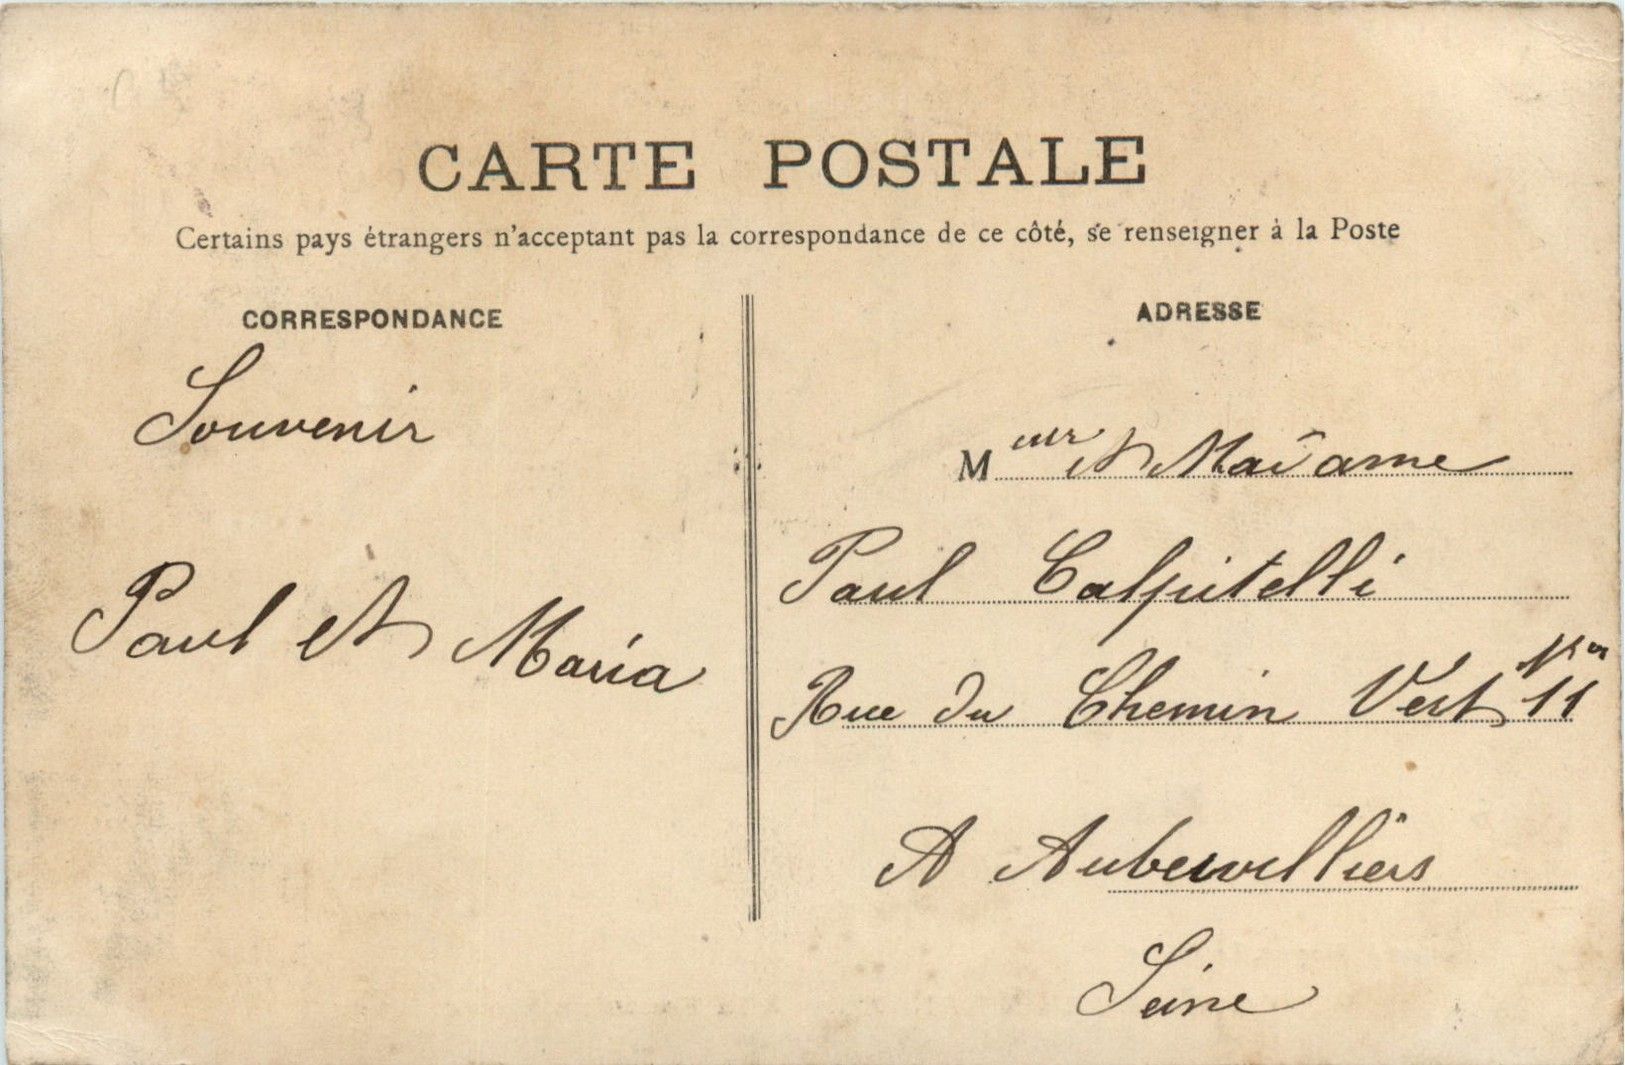 CARTE POSTALE
Certains pays étrangers n'acceptant pas la correspondance de ce côté, se renseigner à la Poste
CORRESPONDANCE
Souvenir
Paul et Maria
ADRESSE
M eur et Madame
Paul Calpitelli
Rue du Chemin Vert 11
A Aubervilliers
Seine